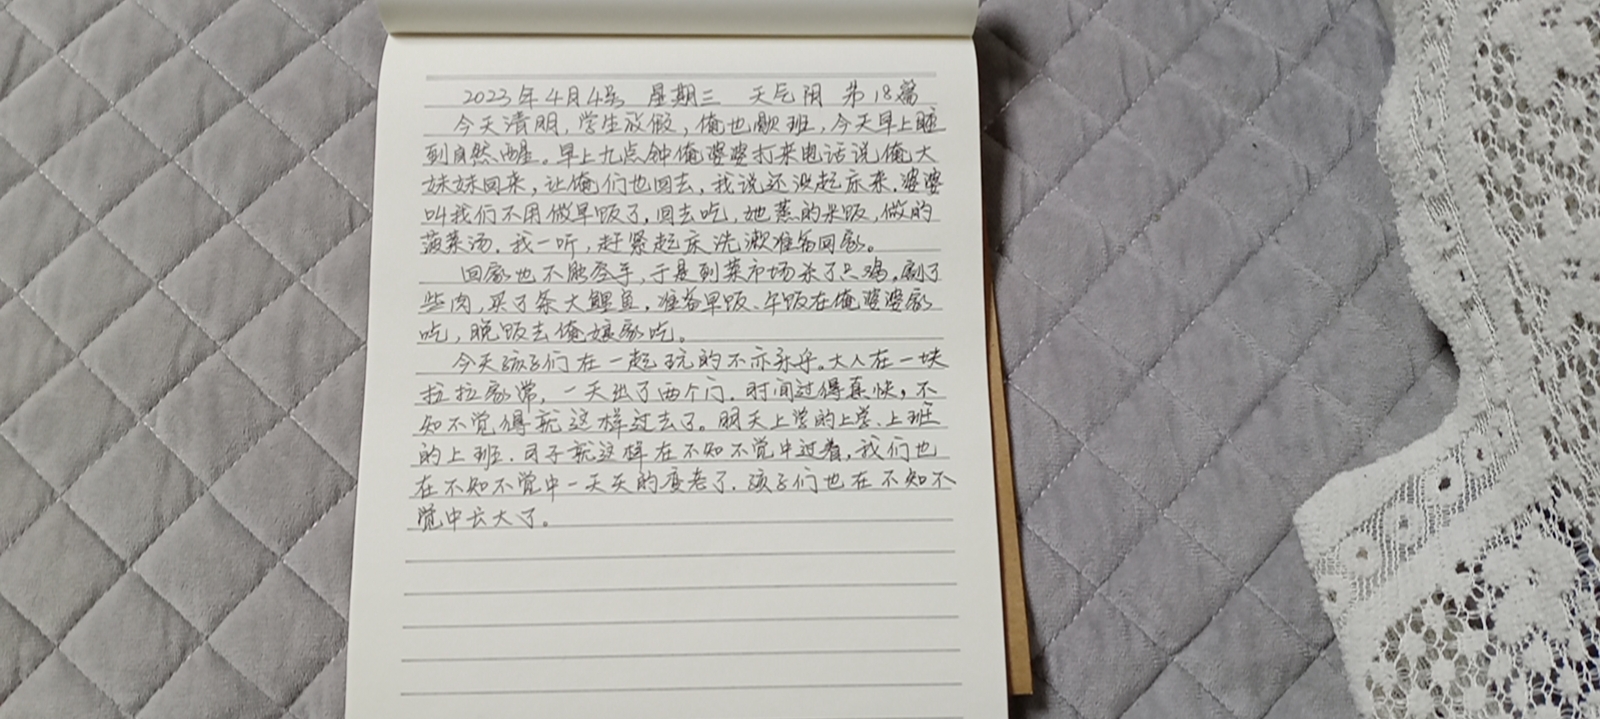 2023年4月4号 星期三 天气阴 第18篇
今天清明，学生放假，俺也歇班，今天早上睡
到自然醒。早上九点钟俺婆婆打来电话说俺大
妹妹回来，让俺们也回去，我说还没起床来，婆婆
叫我们不用做早饭了，回去吃，她蒸的米饭，做的
菠菜汤，我一听，赶紧起床洗漱准备回家。
回家也不能空手，于是到菜市场杀了只鸡，割了
些肉，买了条大鲤鱼，准备早饭、午饭在俺婆婆家
吃，晚饭去俺娘家吃。
今天孩子们在一起玩的不亦乐乎。大人在一块
拉拉家常，一天出了两个门，时间过得真快，不
知不觉得就这样过去了。明天上学的上学、上班
的上班，日子就这样在不知不觉中过着，我们也
在不知不觉中一天天的变老了，孩子们也在不知不
觉中长大了。